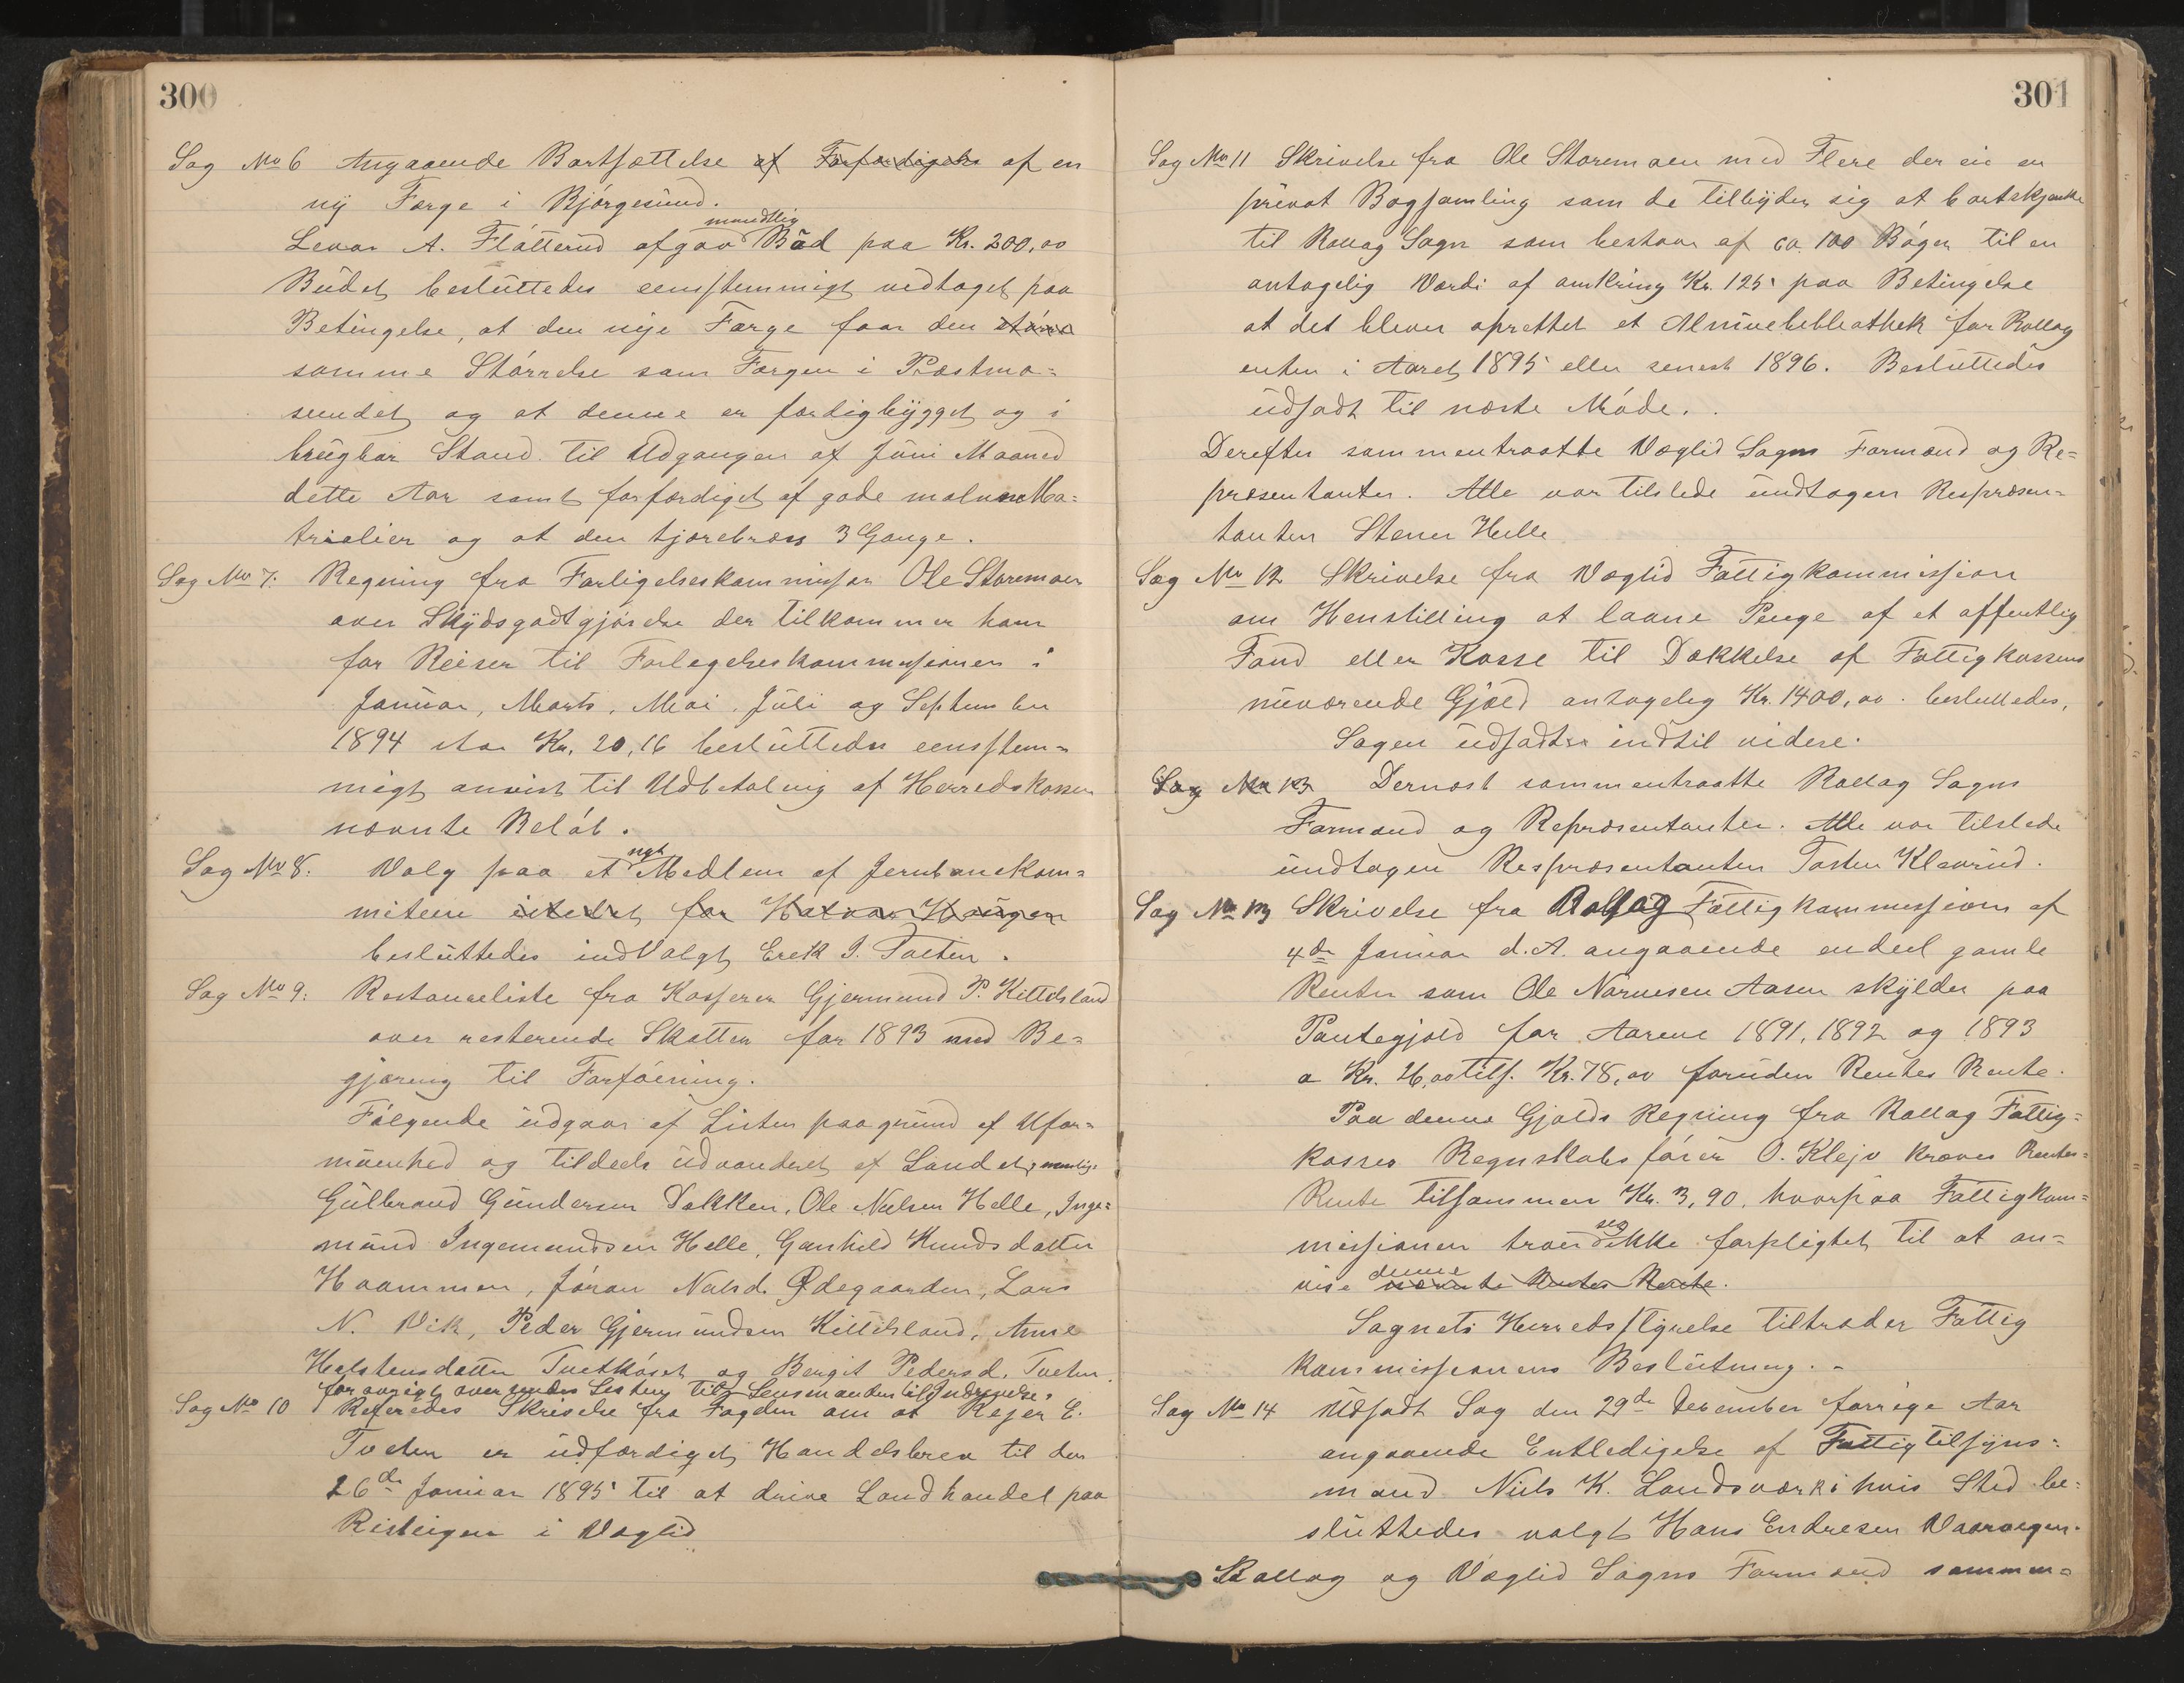 300
Sag No 6 Angaaende Bortsættelse af Forfærdigelse af en
ny Færge i Bjørgesund.
mundtlig
Levor A. Flåtterud afgav Bud paa Kr. 200,00
Budet besluttedes eenstemmigt vedtaget paa
Betingelse, at den nye Færge faar den større
samme Størrelse som Færgen i Præstmo-
sundet og at denne er færdigbygget og i
brugbar Stand til Udgangen af Juni Maaned
dette Aar samt forfærdiget af gode malmne Ma-
trialier og at den tjærebræs 3 Gange.
Sag No 7. Regning fra Forligelseskommissær Ole Staremoen
over Skydsgodtgjørelse der tilkommer ham
for Reiser til Forlegelseskommissionen i
Januar, Marts, Mai, Juli og September
1894 stor Kr. 20,16 besluttedes eenstem-
migt anvist til Udbetaling af Herredskassen
nævnte Beløb.
Sag No 8. Valg paa et nyt Medlem af Jernbanekom-
miteen istedet for Halvor Haugen
besluttedes indvalgt Erek I. Tveten.
Sag No 9: Restanceliste fra Kasserer Gjermund P. Kittelsland
over resterende Skatter for 1893 med Be-
gjæring til Forføining.
Følgende udgaar af Listen paagrund af Ufor-
muenhed og tildeels udvandret af Landet, nemlig:
Gulbrand Gundersen Dokken, Ole Nielsen Helle, Inge-
mund Ingemundsen Helle, Gunhild Knudsdatter
Haammen, Jøran Nielsd. Ødegaarden, Lars
N. Vik, Peder Gjermundsen Kittelsland, Anne
Halstensdatter Tvetkåset og Bergit Pedersd. Tveten.
for øvrigt oversendes Listen til Lensmanden til Inddrivelse.
Sag No 10 Refereredes Skrivelse fra Fogden om at Rejer E.
Tveten er udfærdiget Handelsbrev til den
26de Januar 1895 til at drive Landhandel paa
Risteigen i Væglid
301
Sag No 11 Skrivelse fra Ole Staremoen med Flere der eie en
privat Bogsamling som de tilbyder sig at bortskjænke
til Rollag Sogn som bestaar af ca. 100 Bøger til en
antagelig Værdi af omkring Kr. 125 paa Betingelse
at det bliver oprettet et Almuebebliothek for Rollag
enten i Aaret 1895 eller senest 1896. Besluttedes
udsadt til næste Møde.
Derefter sammentraatte Væglid Sogns Formænd og Re-
præsentanter. Alle var tilstede undtagen Respræsen-
tanten Stener Helle
Sag No 12 Skrivelse fra Væglid Fattigkommission
om Henstilling at laane Penge af et offentlig
Fond eller Kasse til Dækkelse af Fattigkassens
nuværende Gjæld antagelig Kr. 1400,00. besluttedes,
Sagen udsadt indtil videre.
Sag No 13 Dernæst sammentraatte Rollag Sogns
Formænd og Repræsentanter. Alle var tilstede
undtagen Respræsentanten Tosten Kleverud.
Sag No 13 Skrivelse fra Rollag Fattigkommissionen af
4de Januar d.A. angaaende endeel gamle
Renter som Ole Narvesen Aasen skylder paa
Pantegjæld for Aarene 1891, 1892 og 1893
a Kr. 26,00 tils. Kr. 78,00 foruden Rentes Rente.
Paa denne Gjælds Regning fra Rollag Fattig-
kasses Regnskabsfører O. Klejv kræves Rentes-
Rente tilsammen Kr. 3,90, hvorpaa Fattigkom-
missionen troer sig ikke forpligtet til at an-
vise denne nævnte Rentes Rente.
Sognets Herredsstyrelse tiltræder Fattig
kommissionens Beslutning. -
Sag No 14 Udsadt Sag den 29de December forrige Aar
angaaende Entledigelse af Fattigtilsyns-
mand Niels K. Landsværk i hvis Sted be-
sluttedes valgt Hans Endresen Vaarvegen.
Rollag og Væglid Sogns Formænd sammen-